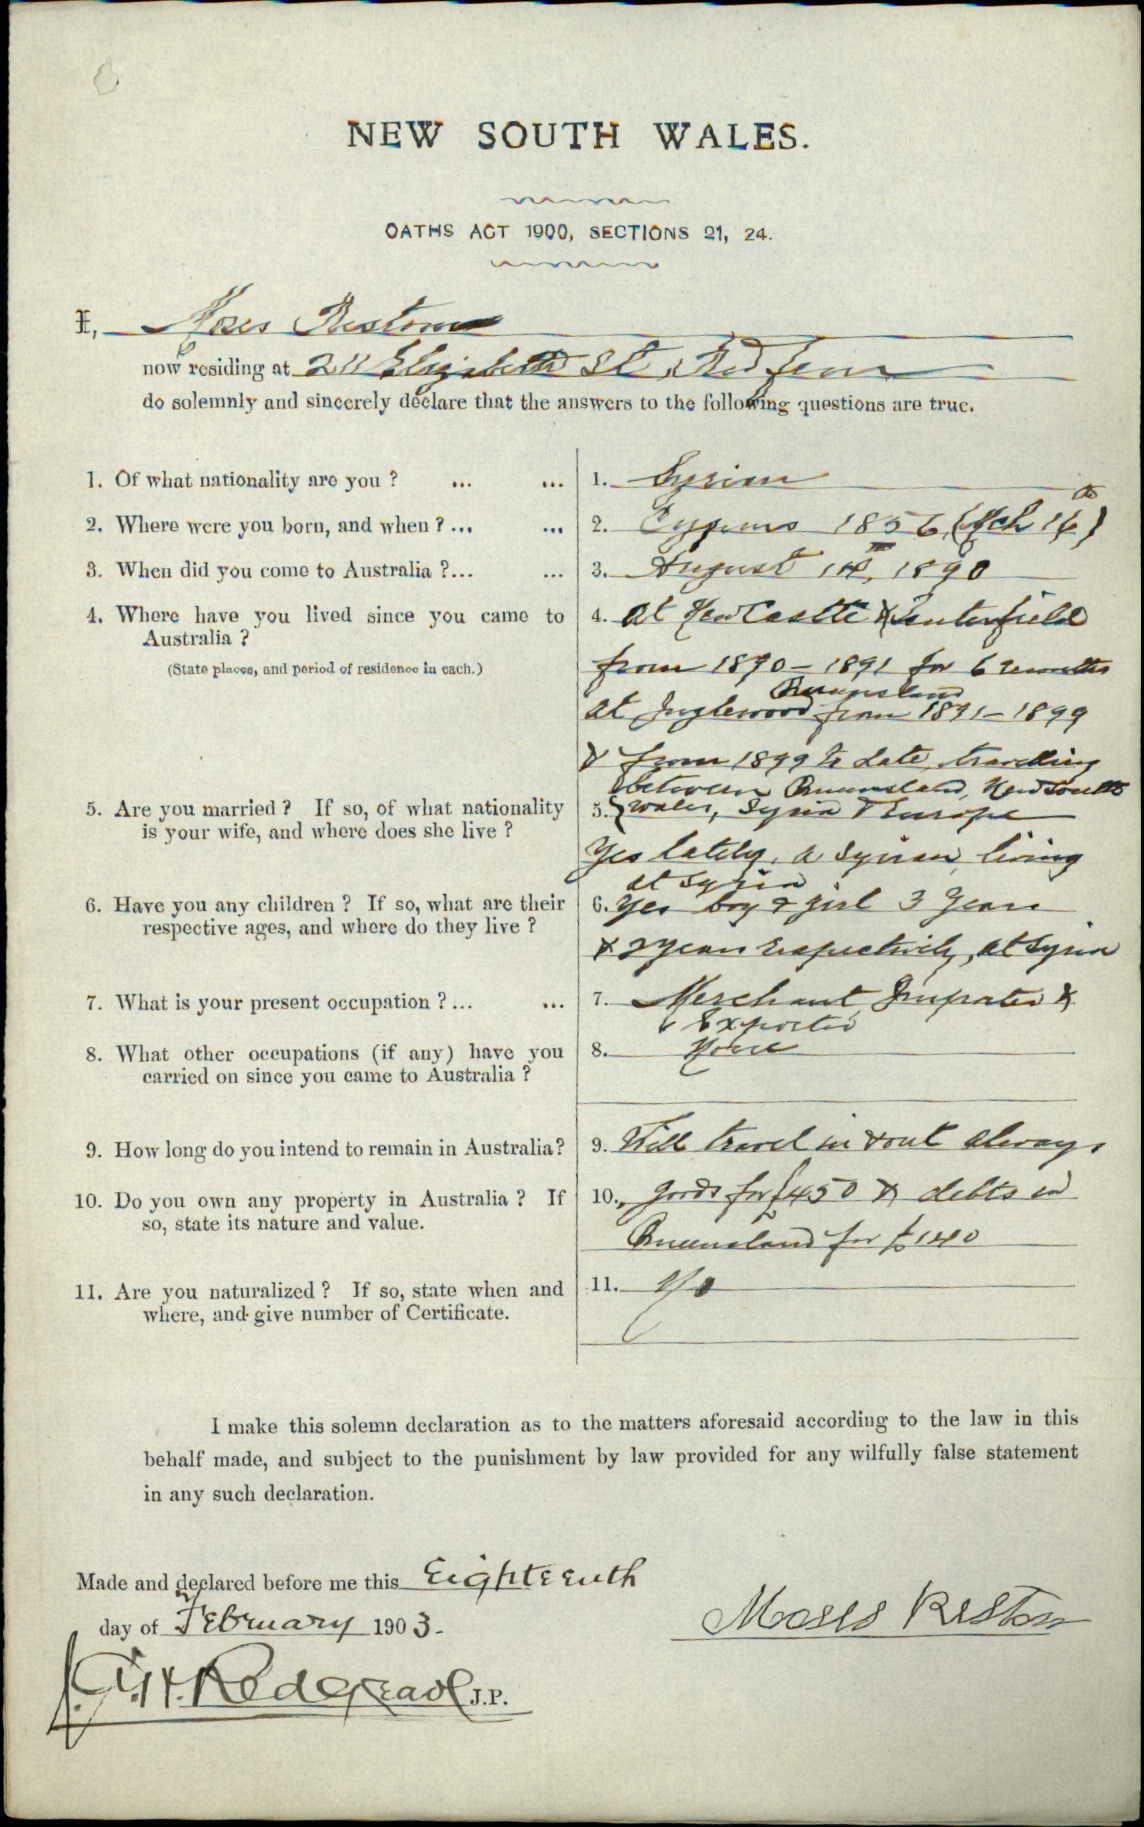 NEW SOUTH WALES.
OATHS ACT 1900, SECTIONS 21, 24.
I, Moses Reston
now residing at 211 Elizabeth St, Redfern
do solemnly and sincerely declare that the answers to the following questions are true.
1. Of what nationality are you ? ... ... 1. Syrian
2. Where were you born, and when ? ... ... 2. Cyprus 1856, (Mch 16th)
3. When did you come to Australia ?... ... 3. August 1st, 1890
4. Where have you lived since you came to 4. at NewCastle & Tenterfield
Australia ?
(State places, and period of residence in each.) from 1890 – 1891 for 6 months
Queensland
at Inglewood from 1891 – 1899
& from 1899 to date, travelling
between Queensland, New South
5. Are you married ? If so, of what nationality 5. Wales, Syria & Europe
is your wife, and where does she live ?
Yes lately, a Syrian, living
at Syria
6. Have you any children ? If so, what are their 6. Yes boy & girl 3 years
respective ages, and where do they live ?
& 2 years respectively, at Syria
7. What is your present occupation ? ... ... 7. Merchant, Importer &
Exporter
8. What other occupations (if any) have you 8. None
carried on since you came to Australia ?
9. How long do you intend to remain in Australia? 9. Will travel in & out always
10. Do you own any property in Australia ? If 10. goods for £450 & debts in
so, state its nature and value.
Queensland for £140
11. Are you naturalized ? If so, state when and 11. No
where, and give number of Certificate.
I make this solemn declaration as to the matters aforesaid according to the law in this
behalf made, and subject to the punishment by law provided for any wilfully false statement
in any such declaration.
Made and declared before me this Eighteenth
day of February 1903.
Moses Reston
J.G.H. Redgrave J.P.